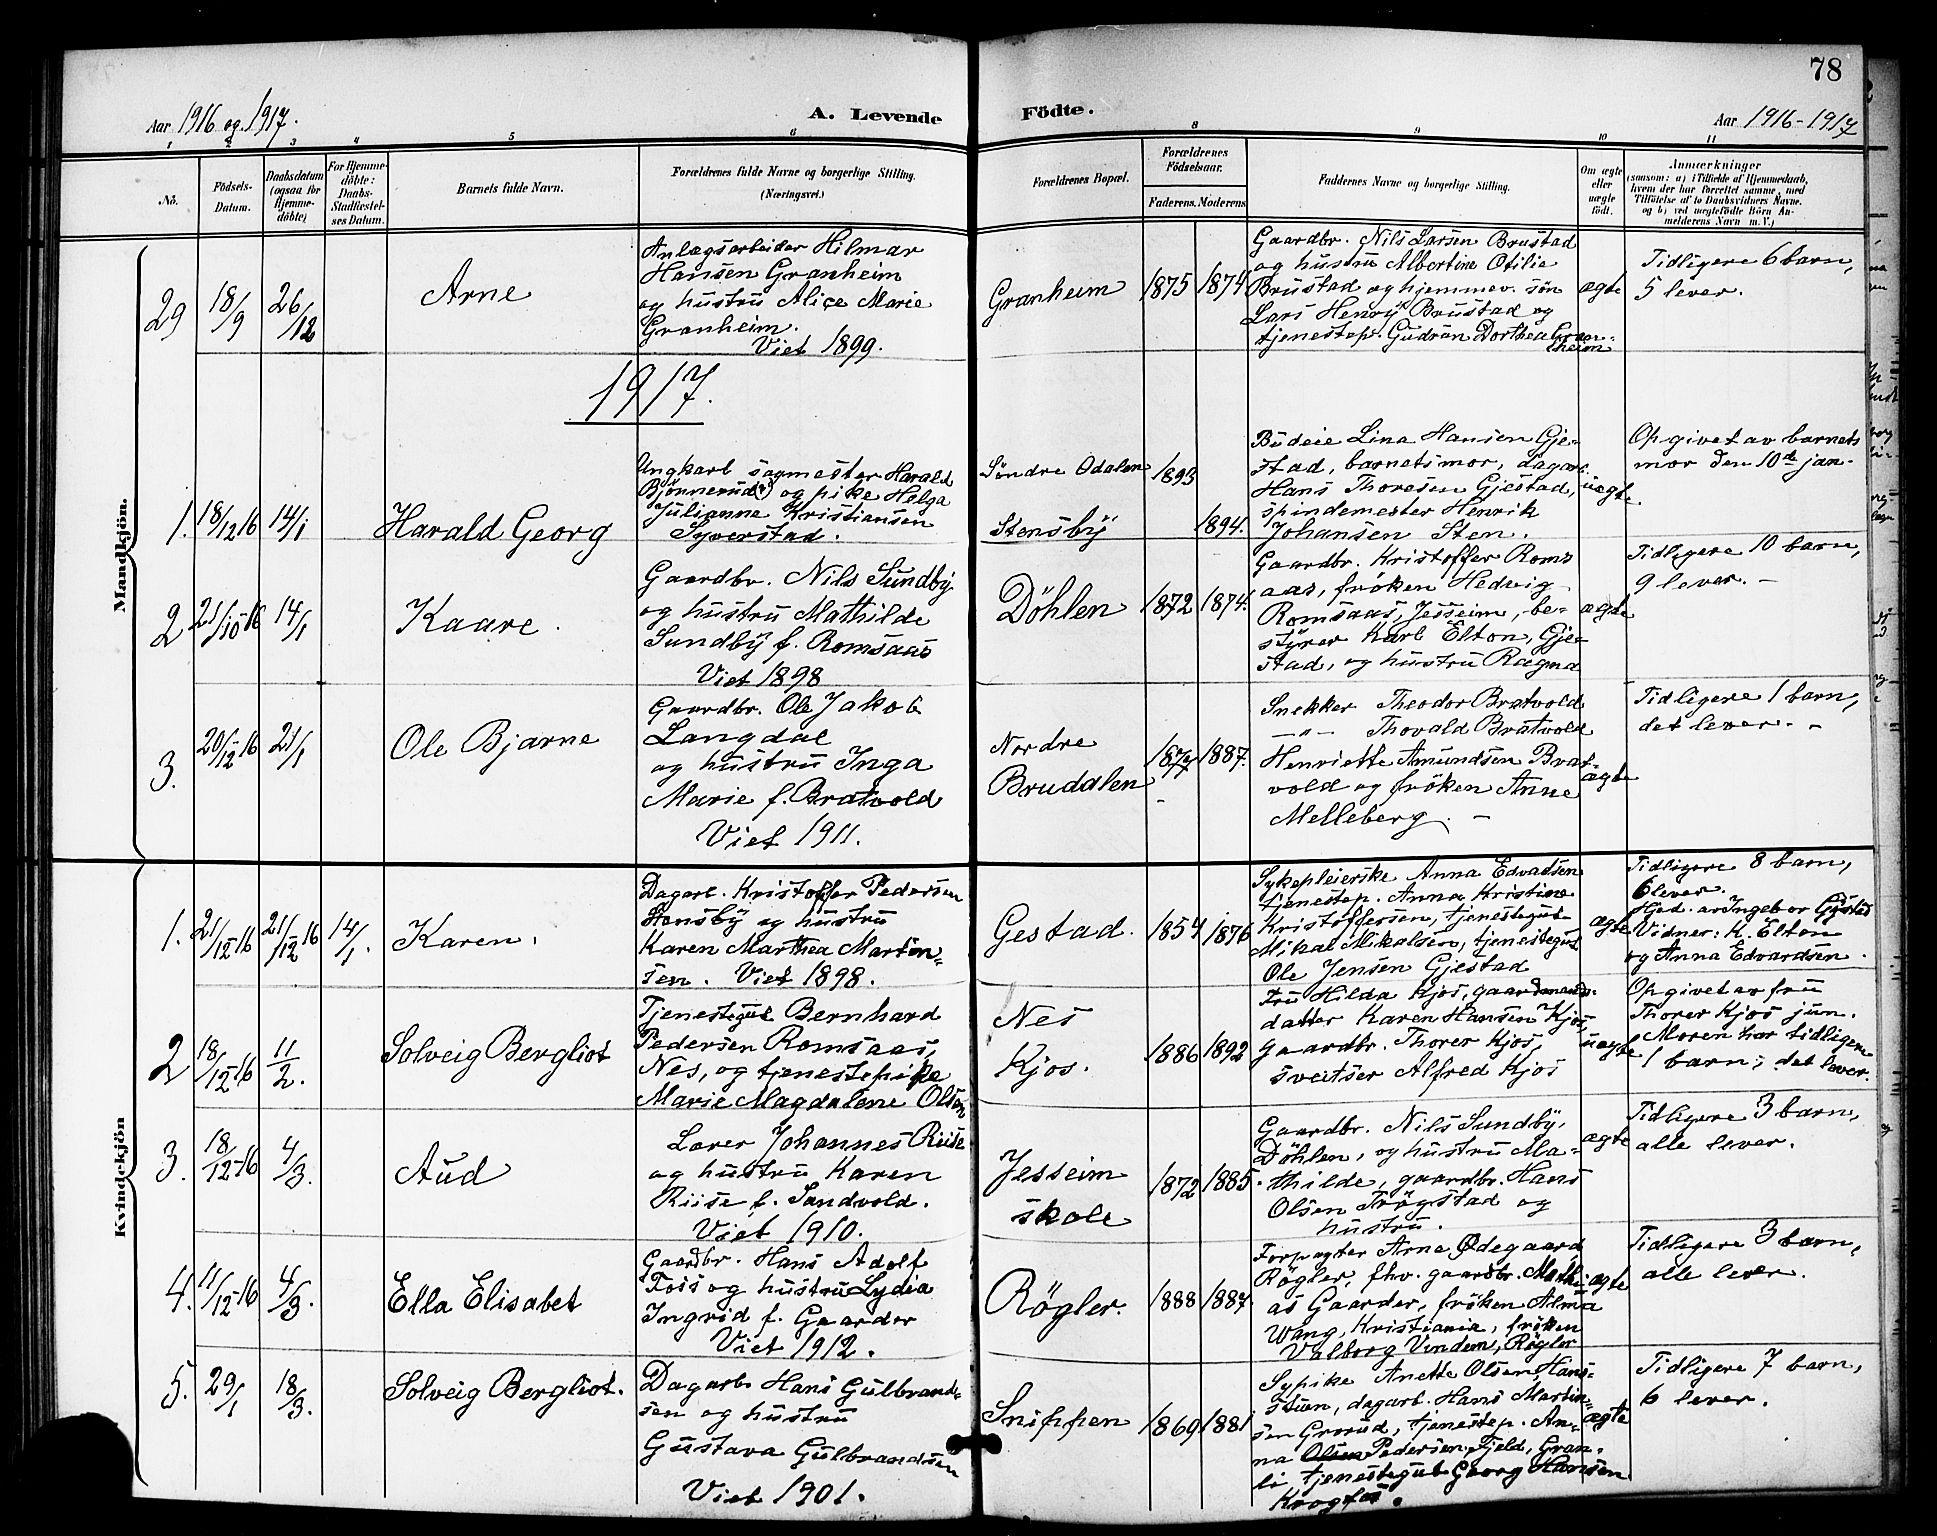 78
Aar 1916 og 1917.
A. Levende
Födte.
Aar 1916-1917
1 2 3 4 5 6 8 9 10 11
No.
Födsels-
Datum.
Daabsdatum
(ogsaa for
Hjemme-
döbte)
For Hjemme-
döbte:
Daabs-
Stadfæstel-
ses Datum.
Barnets fulde Navn.
Forældrenes fulde Navne og borgerlige Stilling.
(Næringsvei.)
Forældrenes Bopæl.
Forældrenes
Födselsaar.
Faderens. Moderens.
Faddernes Navne og borgerlige Stilling.
Om ægte
eller
uægte
födt.
Anmærkninger
(saasom: a) i Tilfælde af Hjemmedaab,
hvem der har forrettet samme, med
Tilföielse af to Daabsvidners Navne.
og b) ved uægtefödte Börn An-
melderens Navn m. V.)
Mandkjön.
29
18/9
26/12
Arne
Anlægsarbeider Hilmar
Hansen Granheim
og hustru Alice Marie
Granheim.
Viet 1899.
Granheim
1875
1874
Gaardbr. Nils Larsen Brustad
og hustru Albertine Otilie
Brustad og hjemmev. søn
Lars Henry Brustad og
tjenestep. Gudrun Dorthea Gran-
heim
ægte
Tidligere 6 barn,
5 lever.
1917.
1.
18/12 16
14/1
Harald Georg
Ungkarl sagmester Harald
Bjønnerud(?) og pike Helga
Julianne Kristiansen
Syverstad.
Søndre Odalen
Stensby
1893
1894.
Budeie Lina Hansen Gje-
stad, barnets mor, dagarb.
Hans Thoresen Gjestad,
spindemester Henrik
Johansen Sten.
uægte
Opgivet av barnets
mor den 10de jan.
2
21/10-16
14/1
Kaare.
Gaardbr. Nils Sundby
og hustru Mathilde
Sundby f. Romsaas
Viet 1898
Döhlen
1872
1874.
Gaardbr. Kristoffer Roms
aas, frøken Hedvig
Romsaas, Jesseim, be-
styrer Karl Elton, Gje-
stad, og hustru Ragna
ægte
Tidligere 10 barn,
9 lever. -
3.
20/12 16
21/1
Ole Bjarne
Gaardbr. Ole Jakob
Langdal
og hustru Inga
Marie f. Bratvold
Viet 1911.
Nordre
Bruddalen
1887.
Snekker Theodor Bratvold
-"- Thovald Bratvold
Henriette Amundsen Brat-
vold og frøken Anne
Melleberg. -
ægte
Tidligere 1 barn,
det lever. -
Kvindekjön
1.
21/12-16
21/12 16
14/1.
Karen.
Dagarb. Kristoffer Pedersen
Stensby og hustru
Karen Marthea Martin-
sen. Viet 1898.
Gestad.
1854
1876
Sykepleierske Anna Edvadsen
tjenestep. Anna Kristine
Kristoffersen, tjenestegut
Mikal Mikalsen, tjenestegut
Ole Jensen Gjestad
ægte
Tidligere 8 barn,
6 lever.
Hjed. av Ingebor Gjestad
Vidner: K. Elton
og Anna Edvardsen.
2
18/12 16
11/2.
Solveig Bergliot
Tjenestegut Bernhard
Pedersen Romsaas,
Nes, og tjenestepike
Marie Magdalene Olsen
Nes
Kjos.
1886
1892
Fru Hilda Kjos, gaardmands-
datter Karen Hansen Kjos,
Gaardbr. Thorer Kjos,
sveitser Alfred Kjos
uægte
Opgivet av fru
Thorer Kjos jun.
Moren har tidligere
1 barn; det lever.
3.
18/12-16
4/3.
Aud
Lærer Johannes Riise
og hustru Karen
Riise f. Sandvold.
Viet 1910.
Jesseim
skole
1872
1885.
Gaardbr. Nils Sundby,
Döhlen, og hustru Ma-
thilde, gaardbr. Hans
Olsen Trøgstad og
hustru.
ægte
Tidligere 3 barn,
alle lever.
4.
11/12 16
4/3.
Ella Elisabet
Gaardbr. Hans Adolf
Foss og hustru Lydia
Ingrid f. Gaarder
Viet 1912.
Rögler.
1888
1887.
Forpagter Arne Ødegaard
Rögler, fhv. gaardbr. Mathi-
as Gaarder, frøken Alma
Wang, Kristiania, frøken
Valborg Vindem, Røgler
ægte
Tidligere 3 barn,
alle lever.
5.
29/1
18/3.
Solveig Bergliot.
Dagarb. Hans Gulbrand-
sen og hustru
Gustava Gulbrandsen
Viet 1901.
Snippen
1869
1881
Sypike Anette Olsen, Hans-
stuen, dagarb. Hans Martin-
sen Grorud, tjenestep. An-
na Olsen Pedersen Fjeld, Gran-
li, tjenestegut Georg Hansen
ægte
Tidligere 7 barn,
6 lever.